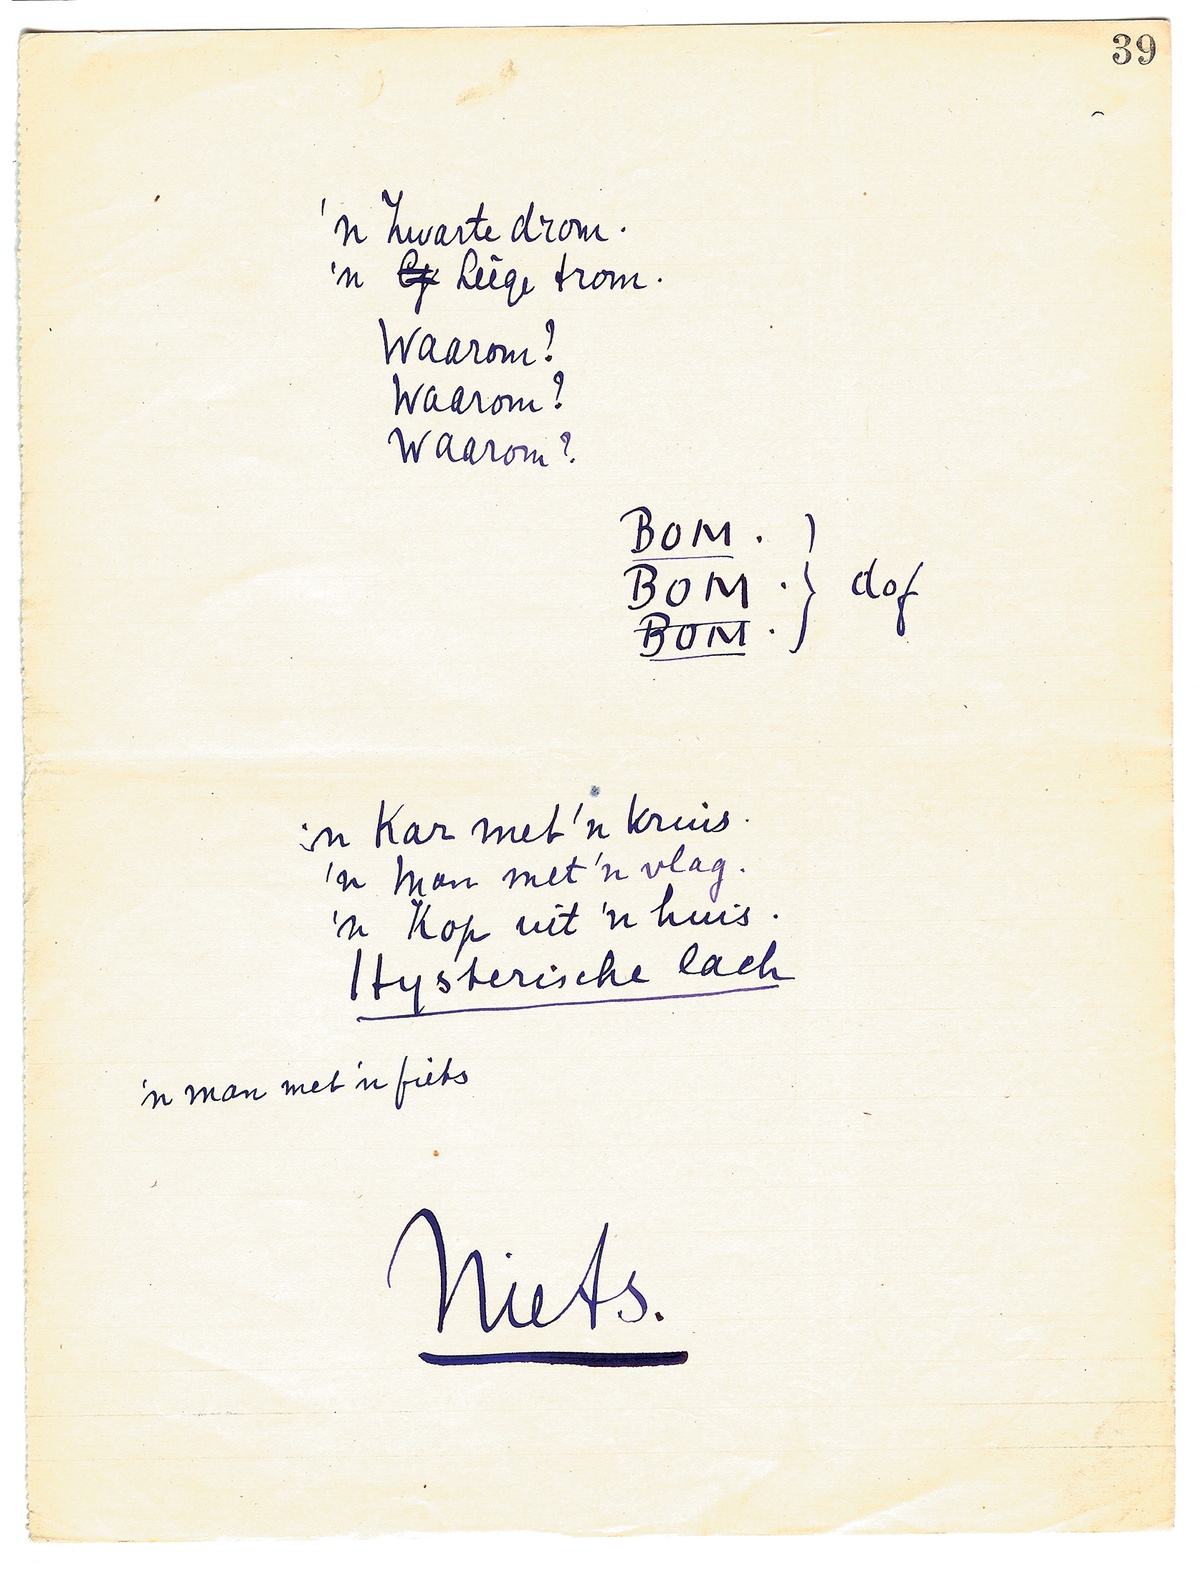 39
'n zwarte drom.
'n leege trom.
Waarom?
Waarom?
Waarom?
BOM.
BOM. } dof
BOM.
'n Kar met 'n kruis.
'n man met 'n vlag.
'n Kop uit 'n huis.
Hysterische lach
'n man met 'n fiets
Niets.